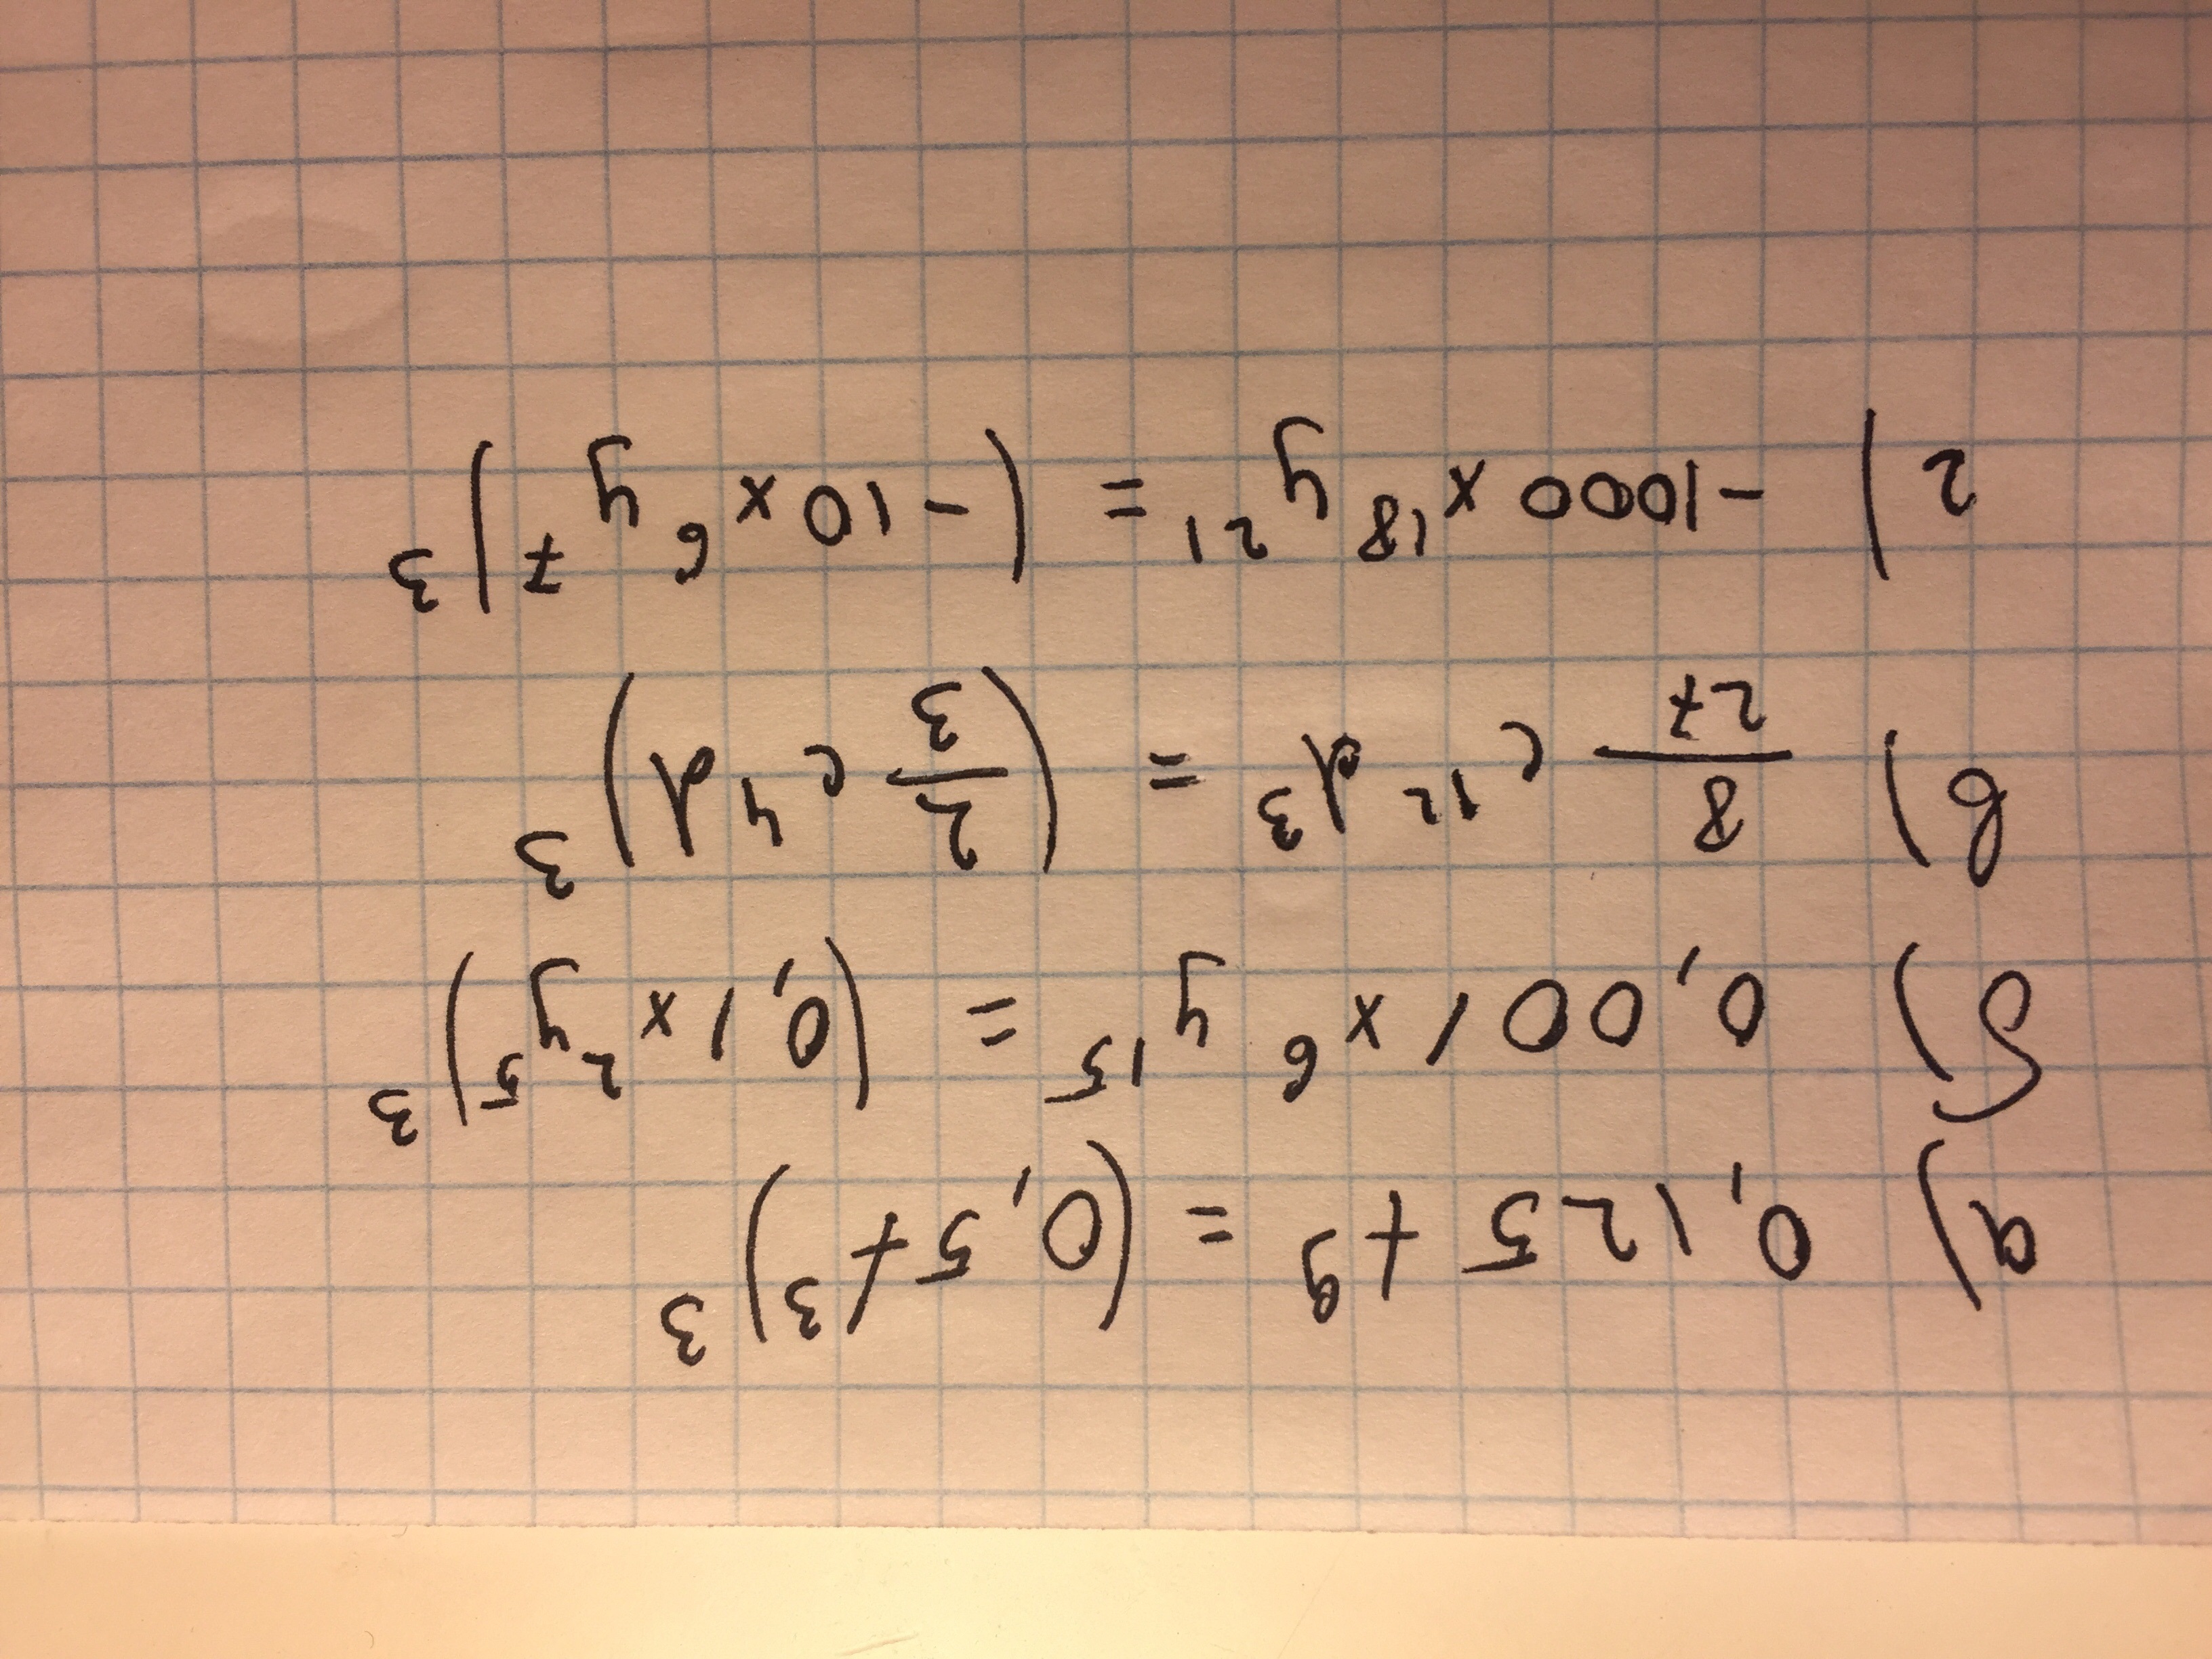 а) 0,125 t⁹ = (0,5 t³)³
б) 0,001 x⁶ y¹⁵ = (0,1 x² y⁵)³
в) 8/27 c¹² d³ = (2/3 c⁴ d)³
г) -1000 x¹⁸ y²¹ = (-10 x⁶ y⁷)³